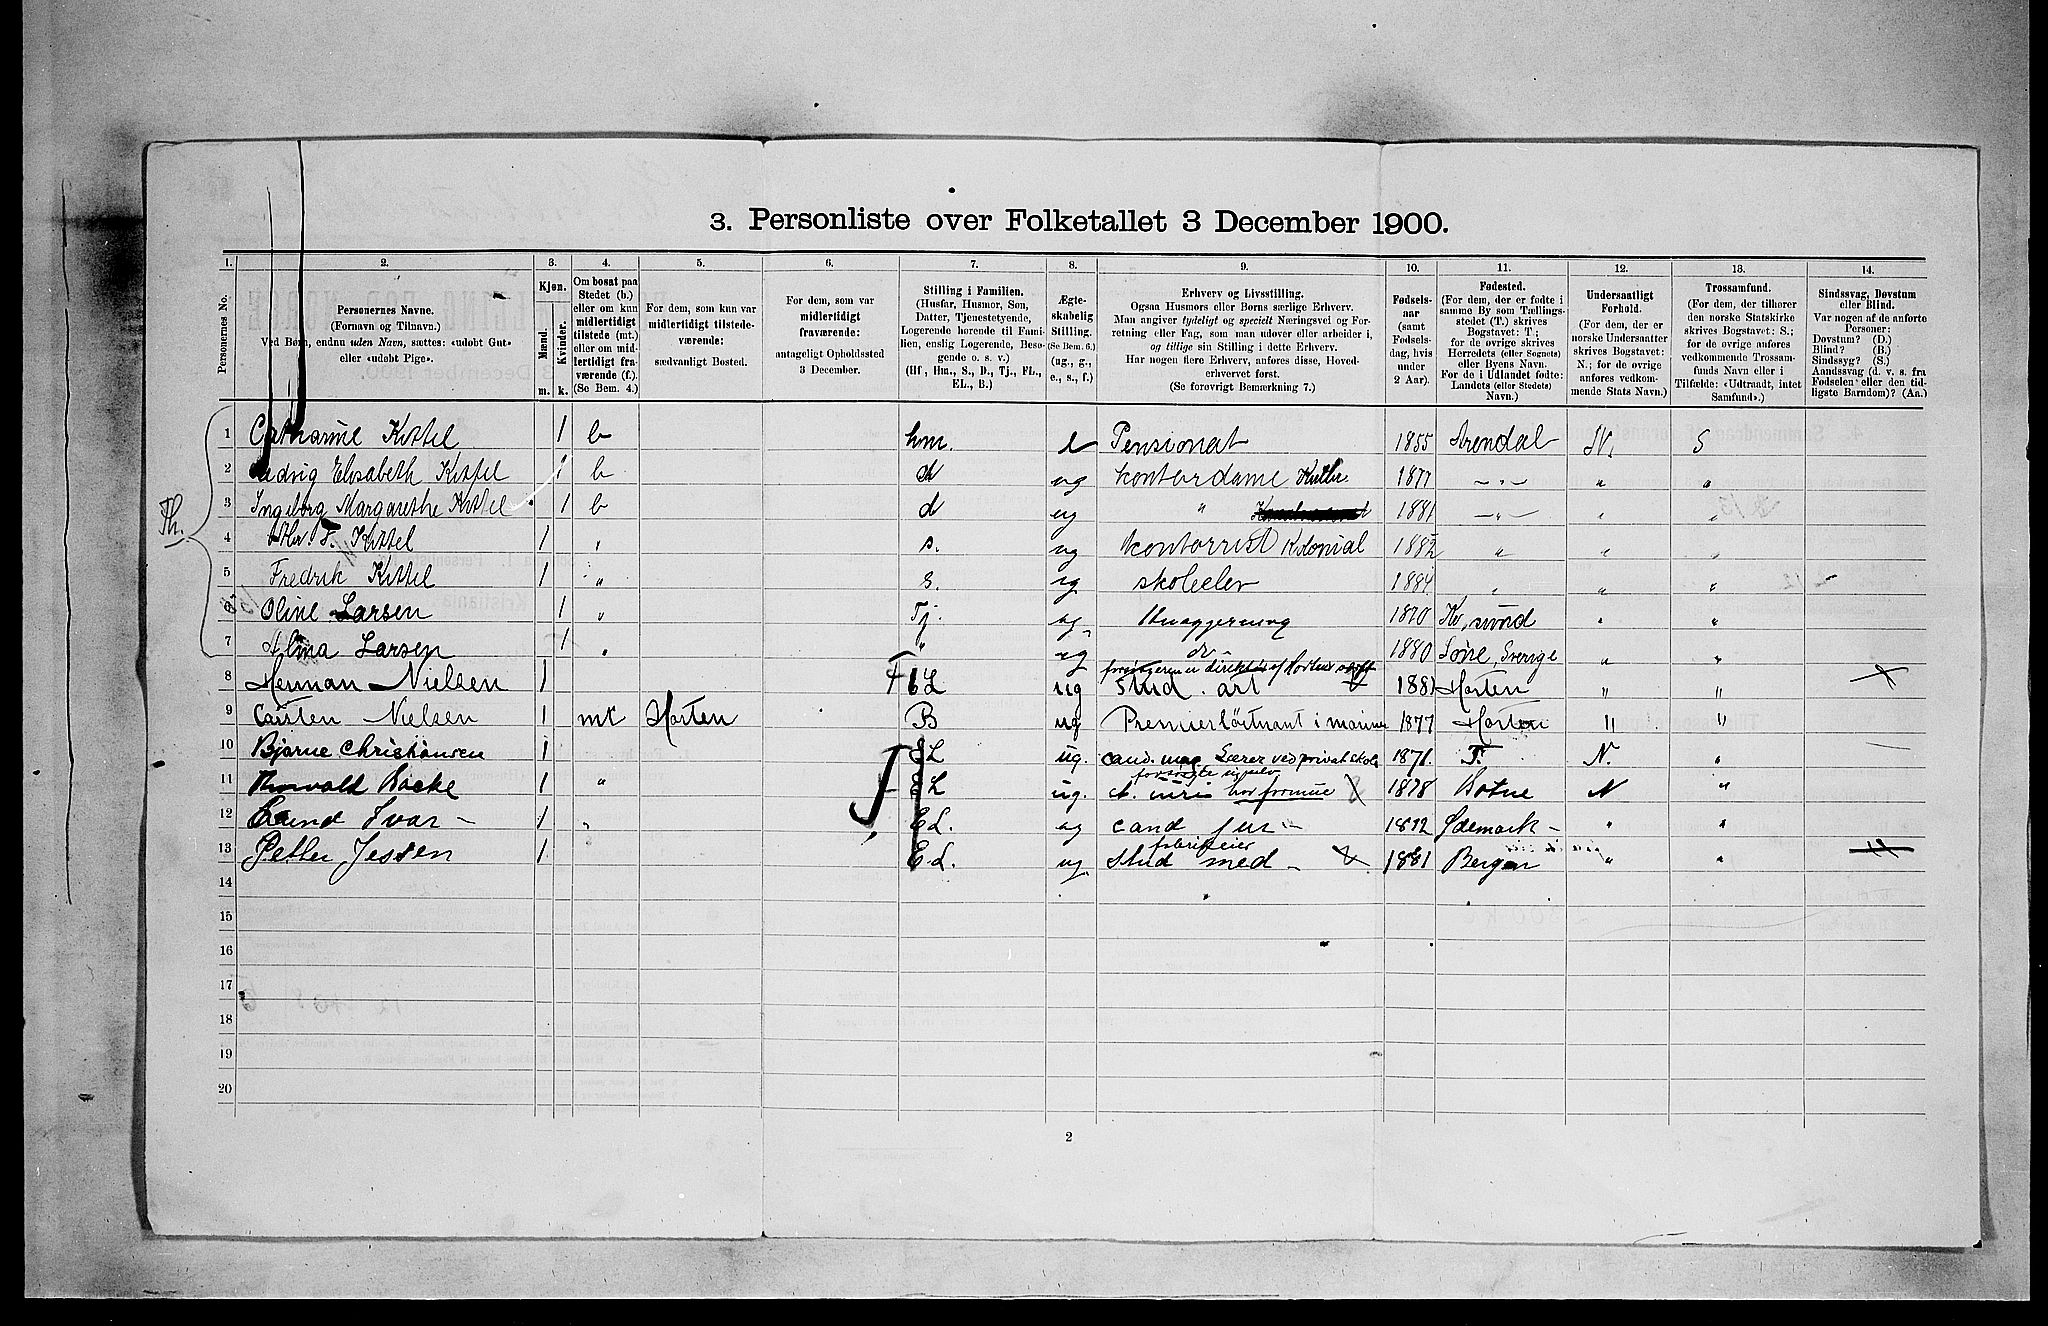 3. Personliste over Folketallet 3 December 1900.
1. 2. 3. 4. 5. 6. 7. 8. 9. 10. 11. 12. 13. 14.
Personernes No.
Personernes Navne.
(Fornavn og Tilnavn.)
Ved Børn, endnu uden Navn, sættes: «udøbt Gut»
eller «udøbt Pige».
Kjøn.
Mænd.
Kvinder.
m. k.
Om bosat paa
Stedet (b.)
eller om kun
midlertidigt
tilstede (mt.)
eller om mid-
lertidigt fra-
værende (f.)
(Se Bem. 4.)
For dem, som kun var
midlertidigt tilstede-
værende:
sædvanligt Bosted.
For dem, som var
midlertidigt
fraværende:
antageligt Opholdssted
3 December.
Stilling i Familien.
(Husfar, Husmor, Søn,
Datter, Tjenestetyende,
Logerende hørende til Fami-
lien, enslig Logerende, Besø-
gende o. s. v.)
(Hf, Hm., S., D., Tj., FL.,
EL., B.)
Ægte-
skabelig
Stilling.
(Se Bem. 6.)
(ug., g.,
e., s., f.)
Erhverv og Livsstilling.
Ogsaa Husmors eller Børns særlige Erhverv.
Man angiver tydeligt og specielt Næringsvei og For-
retning eller Fag, som man udøver eller arbeider i,
og tillige sin Stilling i dette Erhverv.
Har nogen flere Erhverv, anføres disse, Hoved-
erhvervet først.
(Se forøvrigt Bemærkning 7.)
Fødsels-
aar
(samt
Fødsels-
dag, hvis
under
2 Aar).
Fødested.
(For dem, der er fødte i
samme By som Tællings-
stedet (T.) skrives
Bogstavet: T.;
for de øvrige skrives
Herredets (eller Sognets)
eller Byens Navn.
For de i Udlandet fødte:
Landets (eller Stedets)
Navn.)
Undersaatligt
Forhold.
(For dem, der er
norske Undersaatter
skrives Bogstavet:
N.; for de øvrige
anføres vedkom-
mende Stats Navn.)
Trossamfund.
(For dem, der tilhører
den norske Statskirke
skrives Bogstavet: S.;
for de øvrige anføres
vedkommende Trossam-
funds Navn eller i
Tilfælde: «Udtraadt, intet
Samfund».)
Sindssvag, Døvstum
eller Blind.
Var nogen af de anførte
Personer:
Døvstum? (D.)
Blind? (B.)
Sindssyg? (S.)
Aandssvag (d. v. s. fra
Fødselen eller den tid-
ligste Barndom)? (Aa.)
Th.
1 Catharine Kittel 1 b hm. e Pensionat 1855 Arendal N. S
2 Hedvig Elisabeth Kittel 1 b d ug Kontordame 1877 – " – " "
3 Ingeborg Margarethe Kittel 1 b d ug " 1881 – " – " "
4 F. Kittel 1 " s. ug Kontorrist Kolonial 1882 " " "
5 Fredrik Kittel 1 " s. ug skoleelev 1884 " " "
6 Oline Larsen 1 " Tj. ug 1870 Kr, sund " "
7 Alma Larsen 1 " " ug do 1880 Sverige " "
8 Herman Nielsen 1 EL ug stud. art 1881 Horten " "
9 Carsten Nielsen 1 mt Horten B ug Premierløitnant i marinen 1877 Horten " "
10 Bjarne Christiansen 1 EL ug. cand. mag Lærer ved privat skole 1871. T. N. "
11 Thorvald Backe 1 " EL ug. forsørgte
har formue 1878 Botne N "
12 Ivar – 1 " EL. ug cand jur – 1872 Ødemark – " "
13 Petter Jessen 1 EL. ug. stud med – 1881 Bergen " "
14
15
16
17
18
19
20
2